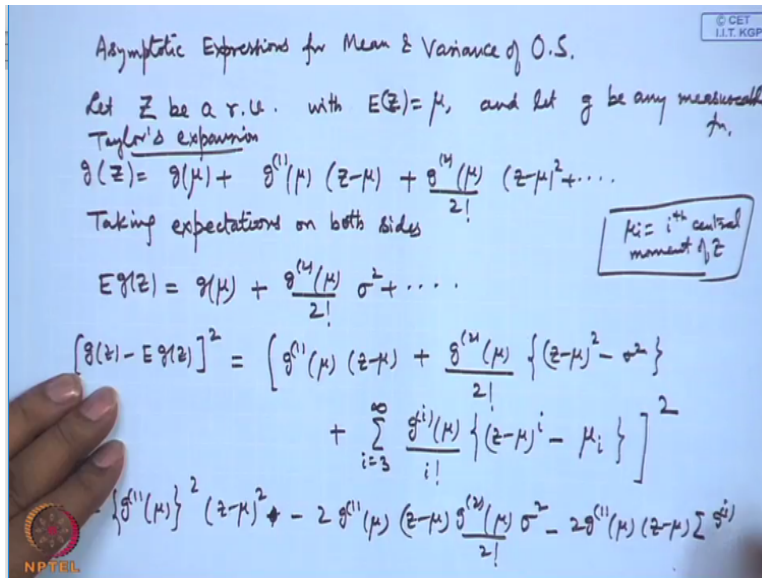 © CET
I.I.T. KGP
Asymptotic Expressions for Mean & Variance of O.S.
Let Z be a r.v. with E(Z) = μ, and let g be any measurable fn.
Taylor's expansion
g(Z) = g(μ) + g^{(1)}(μ) (Z-μ) + g^{(2)}(μ)/2! (Z-μ)^2 + ....
Taking expectations on both sides
μ_i = i^{th} central moment of Z
E g(Z) = g(μ) + g^{(2)}(μ)/2! σ^2 + ....
[g(Z) - E g(Z)]^2 = [g^{(1)}(μ) (Z-μ) + g^{(2)}(μ)/2! {(Z-μ)^2 - σ^2}
+ ∑_{i=3}^{∞} g^{(i)}(μ)/i! {(Z-μ)^i - μ_i}]^2
{g^{(1)}(μ)}^2 (Z-μ)^2 - 2 g^{(1)}(μ) (Z-μ) g^{(2)}(μ)/2! σ^2 - 2g^{(1)}(μ) (Z-μ) ∑ g^{(i)}
NPTEL